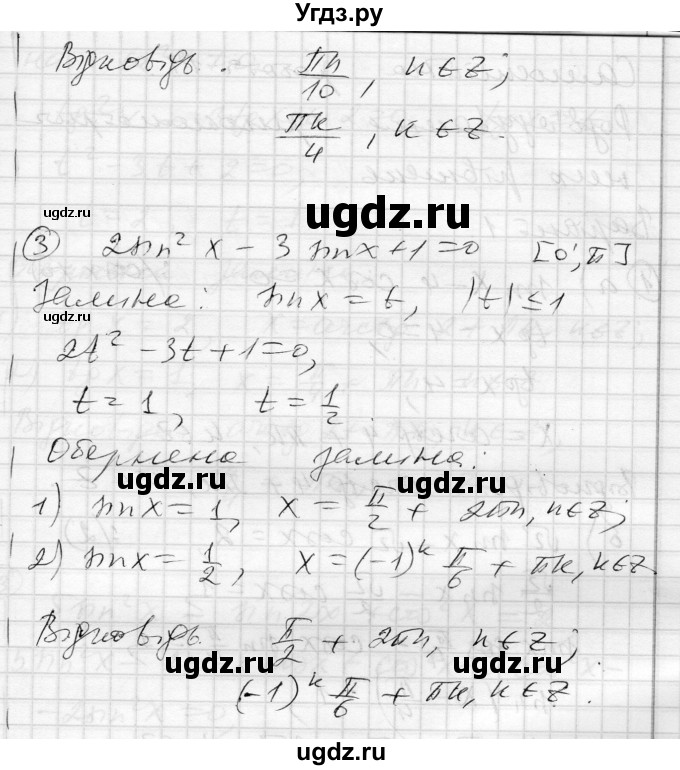 Угдз.ру
Відповідь: πn/10, n ∈ Z;
πk/4, k ∈ Z.
ugdz.ru
ugdz.ru
ugdz.ru
③ 2sin² x - 3 sinx + 1 = 0 [0; π]
Заміна: sinx = t, |t| ≤ 1
2t² - 3t + 1 = 0,
t = 1, t = 1/2.
Обернена заміна:
ugdz.ru
ugdz.ru
1) sinx = 1, x = π/2 + 2πn, n ∈ Z;
ugdz.ru
2) sinx = 1/2, x = (-1)^k π/6 + πk, k ∈ Z.
Відповідь. π/2 + 2πn, n ∈ Z;
ugdz.ru
ugdz.ru
(-1)^k π/6 + πk, k ∈ Z.
ugdz.ru